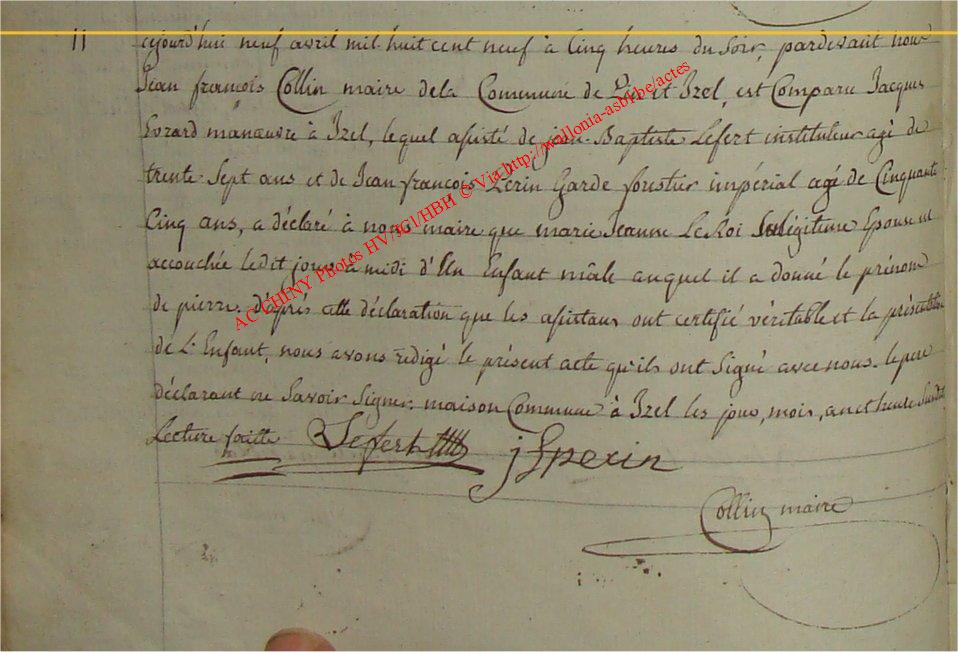 11
cejourd'hui neuf avril mil huit cent neuf à Cinq heures du Soir, pardevant nous
Jean françois Collin maire dela Commune de et Izel, est Comparu Jacques
Evrard manœuvre à Izel, lequel assisté de jean Baptiste Lefert instituteur agé de
trente Sept ans et de Jean françois Perin Garde forestier impérial agé de Cinquante
Cinq ans, a déclaré à nous maire que marie Jeanne Le Roi Sa légitime Epouse est
accouchée ledit jour à midi d'Un Enfant mâle auquel il a donné le prénom
de pierre. d'après cette déclaration que les assistans ont certifié véritable et la présentation
de L'Enfant, nous avons rédigé le présent acte qu'ils ont Signé avec nous. le pere
déclarant ne Savoir Signer. maison Commune à Izel les jour, mois, an et heure Susdits
Lecture faitte Lefert jfperin
Collin maire
AC CHINY Photos HV/JGI/HBH © Via http://wallonia-asbl.be/actes